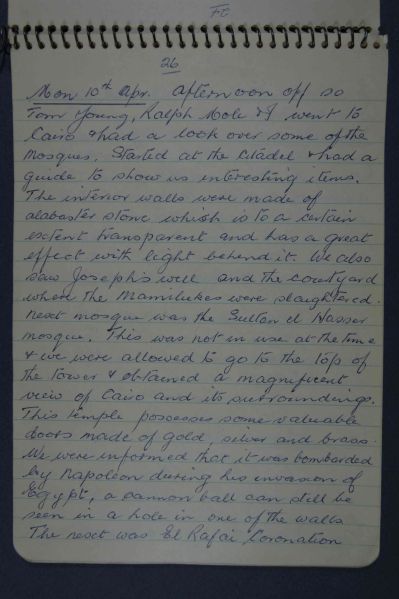 26
Mon 10th Apr. afternoon off so
Tom Young, Ralph Mole & I went to
Cairo & had a look over some of the
mosques. Started at the Citadel & had a
guide to show us interesting items.
The interior walls were made of
alabaster stone which is to a certain
extent transparent and has a great
effect with light behind it. We also
saw Joseph's well and the courtyard
where the Mamilukes were slaughtered.
next mosque was the Sultan el Hasser
mosque. This was not in use at the time
& we were allowed to go to the top of
the tower & obtained a magnificent
view of Cairo and its surroundings.
This temple possesses some valuable
doors made of gold, silver and brass.
We were informed that it was bombarded
by Napoleon during his invasion of
Egypt, a cannon ball can still be
seen in a hole in one of the walls
The next was El Rafai Coronation